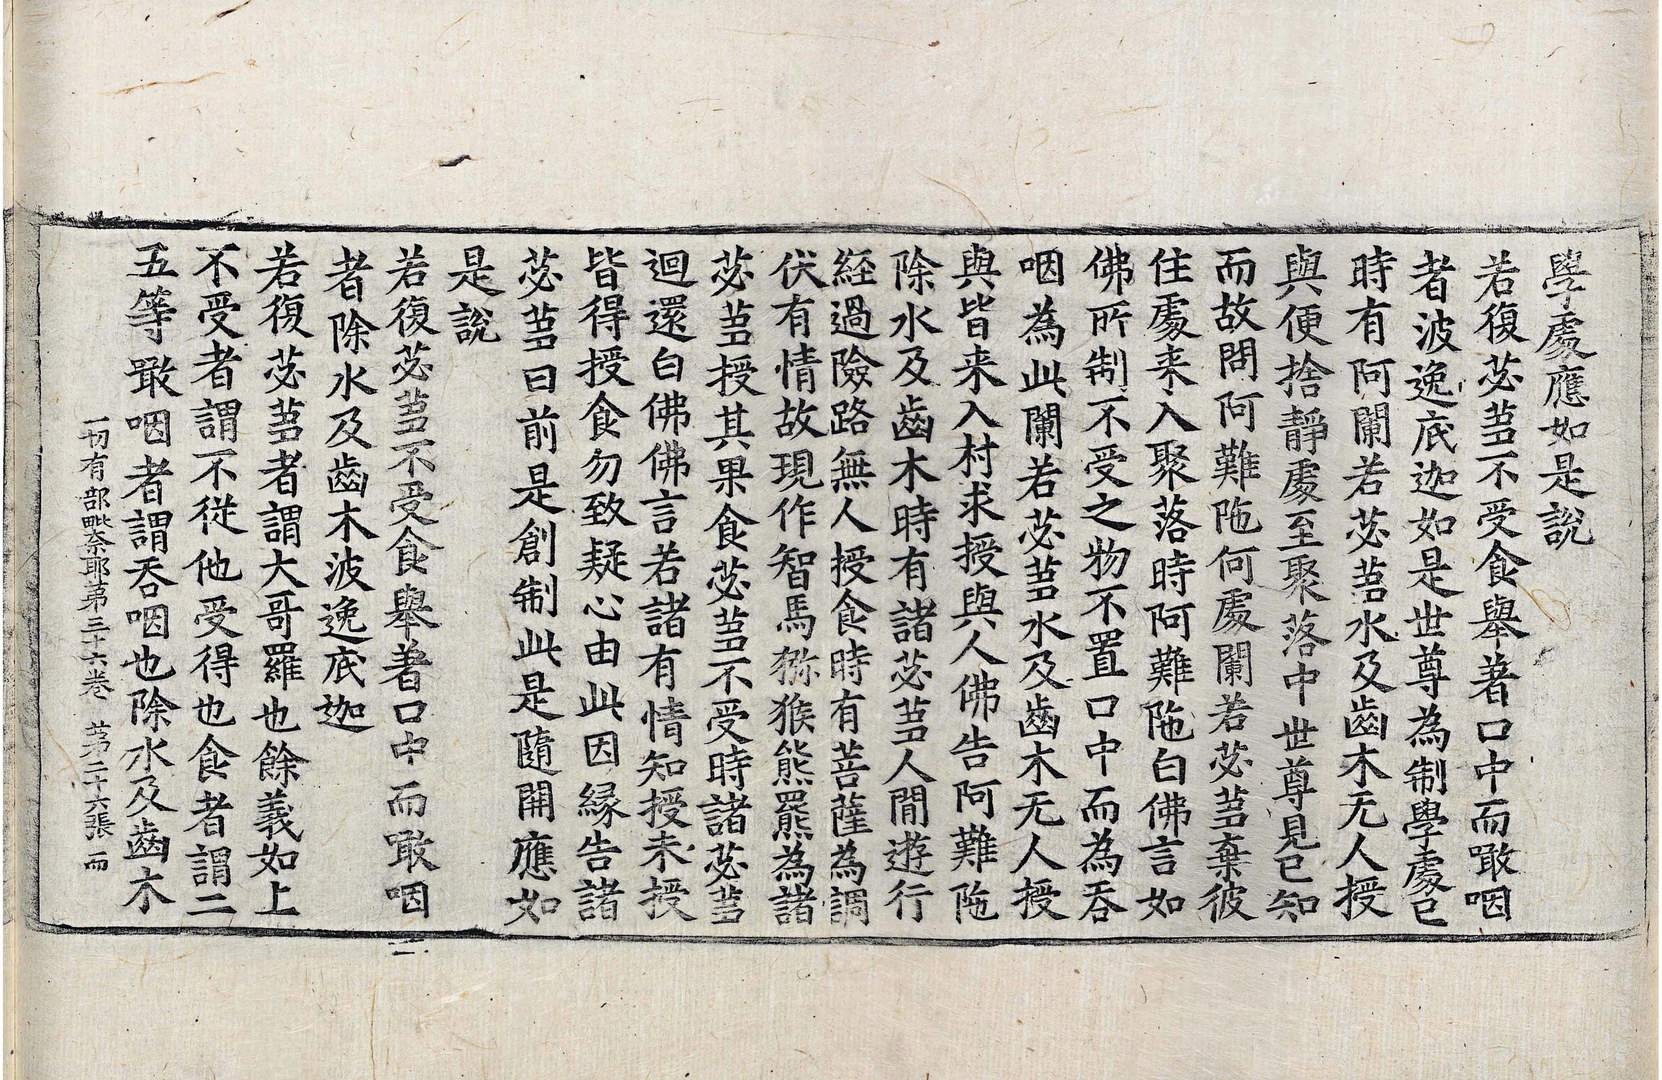 學處應如是說
若復苾蒭不受食舉著口中而噉咽
者波逸底迦如是世尊為制學處已
時有阿蘭若苾蒭水及齒木无人授
與便捨靜處至聚落中世尊見已知
而故問阿難陁何處蘭若苾蒭棄彼
住處来入聚落時阿難陁白佛言如
佛所制不受之物不置口中而為吞
咽為此蘭若苾蒭水及齒木无人授
與皆来入村求授與人佛告阿難陁
除水及齒木時有諸苾蒭人間遊行
経過險路無人授食時有菩薩為調
伏有情故現作智馬猕猴熊羆為諸
苾蒭授其果食苾蒭不受時諸苾蒭
迴還白佛佛言若諸有情知授未授
皆得授食勿致疑心由此因縁告諸
苾蒭曰前是創制此是隨開應如
是說
若復苾蒭不受食舉著口中而噉咽
者除水及齒木波逸底迦
若復苾蒭者謂大哥羅也餘義如上
不受者謂不從他受得也食者謂二
五等噉咽者謂吞咽也除水及齒木
一切有部毗奈耶第三十六卷 苐二十六張 而